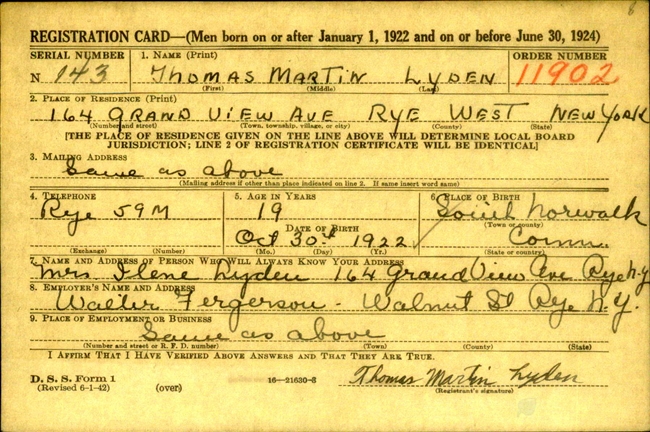 REGISTRATION CARD—(Men born on or after January 1, 1922 and on or before June 30, 1924)
SERIAL NUMBER 1. NAME (Print) ORDER NUMBER
N 143 THOMAS MARTIN LYDEN 11902
(First) (Middle) (Last)
2. PLACE OF RESIDENCE (Print)
164 GRAND VIEW AVE RYE WEST NEW YORK
(Number and street) (Town, township, village, or city) (County) (State)
[THE PLACE OF RESIDENCE GIVEN ON THE LINE ABOVE WILL DETERMINE LOCAL BOARD
JURISDICTION; LINE 2 OF REGISTRATION CERTIFICATE WILL BE IDENTICAL]
3. MAILING ADDRESS
Same as above
(Mailing address if other than place indicated on line 2. If same insert word same)
4. TELEPHONE 5. AGE IN YEARS 6. PLACE OF BIRTH
Rye 59M 19 South Norwalk
DATE OF BIRTH (Town or county)
Oct 30th 1922 Conn.
(Exchange) (Number) (Mo.) (Day) (Yr.) (State or country)
7. NAME AND ADDRESS OF PERSON WHO WILL ALWAYS KNOW YOUR ADDRESS
Mrs. Ilene Lyden 164 Grand View Ave Rye N.Y
8. EMPLOYER'S NAME AND ADDRESS
Walter Fergerson - Walnut St Rye N.Y.
9. PLACE OF EMPLOYMENT OR BUSINESS
Same as above
(Number and street or R. F. D. number) (Town) (County) (State)
I AFFIRM THAT I HAVE VERIFIED ABOVE ANSWERS AND THAT THEY ARE TRUE.
D. S. S. Form 1
(Revised 6-1-42) (over) 16—21630-8 Thomas Martin Lyden
(Registrant's signature)